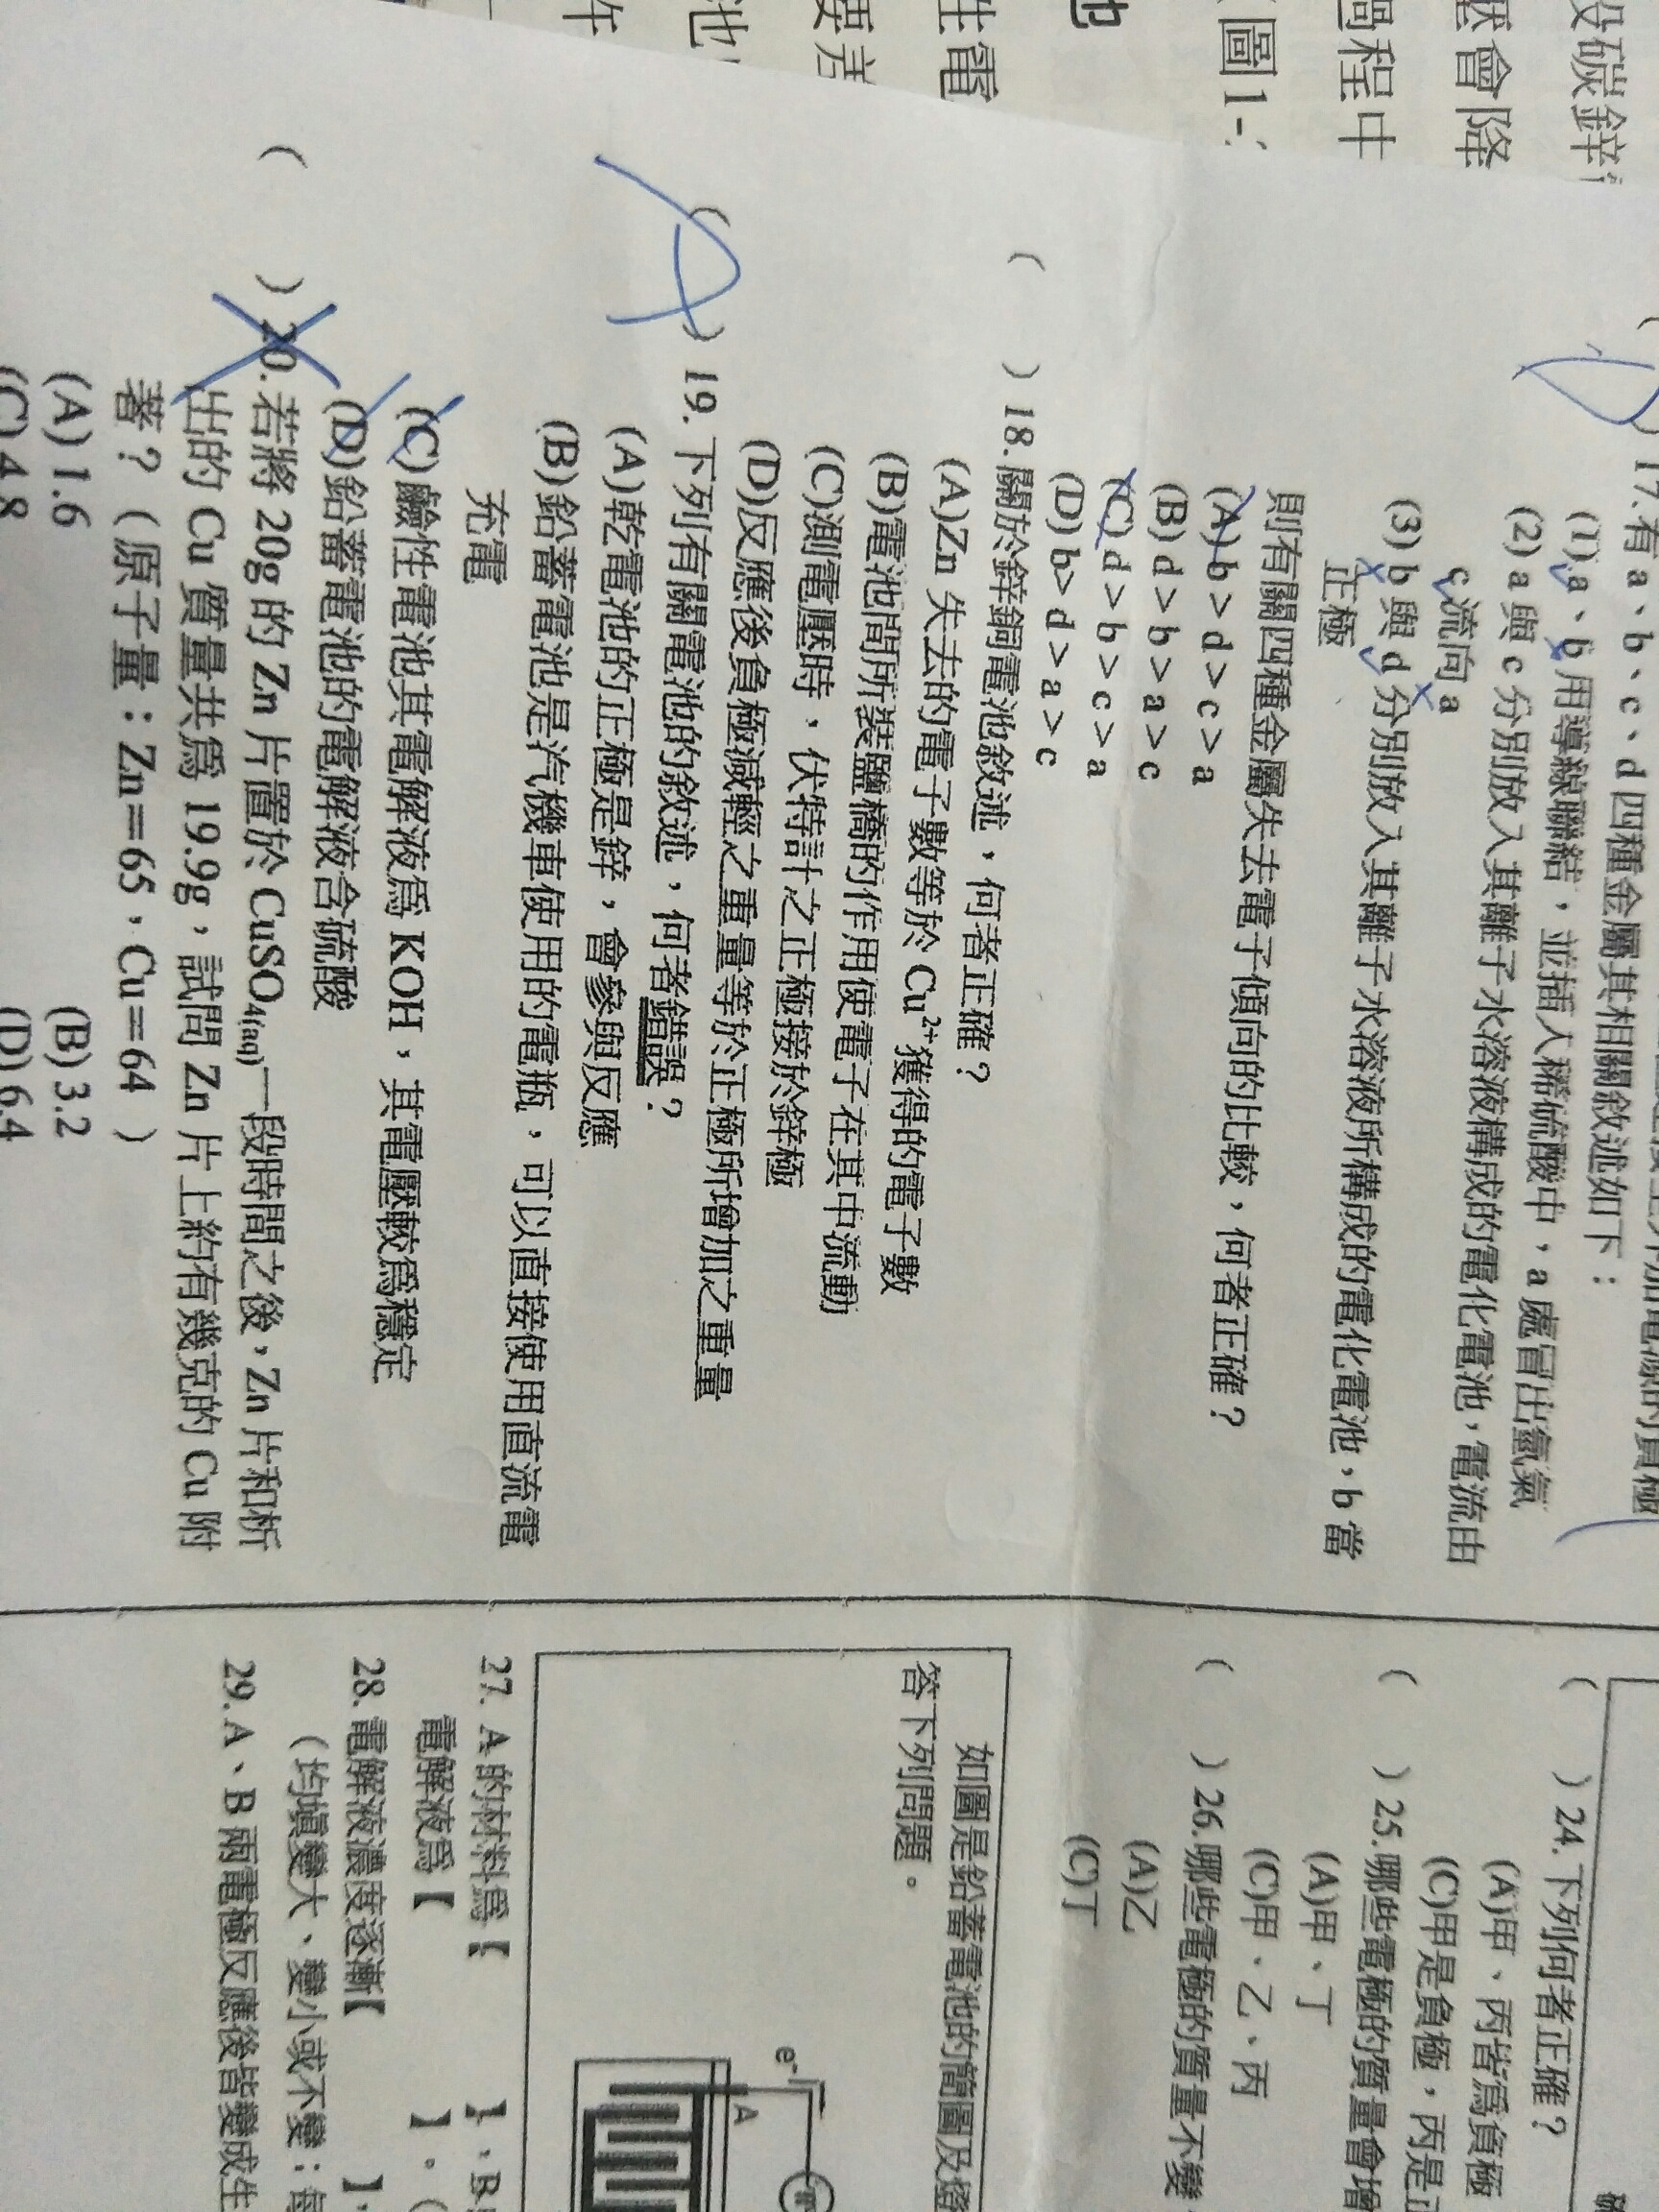 17.有 a、b、c、d 四種金屬其相關敘述如下：
(1) a、b 用導線聯結，並插入稀硫酸中，a 處冒出氫氣
(2) a 與 c 分別放入其離子水溶液構成的電化電池，電流由
c 流向 a
(3) b 與 d 分別放入其離子水溶液所構成的電化電池，b 當
正極
則有關四種金屬失去電子傾向的比較，何者正確？
(A) b＞d＞c＞a
(B) d＞b＞a＞c
(C) d＞b＞c＞a
(D) b＞d＞a＞c
(　) 18.關於鋅銅電池敘述，何者正確？
(A)Zn 失去的電子數等於 Cu²⁺獲得的電子數
(B)電池間所裝鹽橋的作用使電子在其中流動
(C)測電壓時，伏特計之正極接於鋅極
(D)反應後負極減輕之重量等於正極所增加之重量
(A) 19.下列有關電池的敘述，何者錯誤？
(A)乾電池的正極是鋅，會參與反應
(B)鉛蓄電池是汽機車使用的電瓶，可以直接使用直流電
充電
(C)鹼性電池其電解液為 KOH，其電壓較為穩定
(D)鉛蓄電池的電解液含硫酸
(　) 20.若將 20g 的 Zn 片置於 CuSO₄(aq)一段時間之後，Zn 片和析
出的 Cu 質量共為 19.9g，試問 Zn 片上約有幾克的 Cu 附
著？（原子量：Zn＝65，Cu＝64 ）
(A) 1.6 (B) 3.2
(C) 4.8 (D) 6.4
(　) 24.下列何者正確？
(A)甲、丙皆為負極
(C)甲是負極，丙是
(　) 25.哪些電極的質量會增
(A)甲、丁
(C)甲、乙、丙
(　) 26.哪些電極的質量不變
(A)乙
(C)丁
如圖是鉛蓄電池的簡圖及
答下列問題。
e⁻
A
27. A 的材料為【　】、B
電解液為【　】。（
28.電解液濃度逐漸【　】
（均填變大、變小或不變：每
29. A、B 兩電極反應後皆變成
段碳鋅
壓會降
過程中
圖1-
池
生電
要差
池